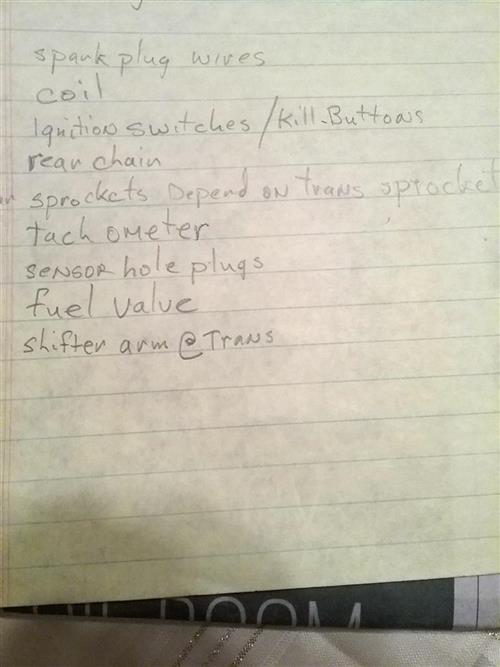 spark plug wires
coil
Ignition switches / Kill-Buttons
rear chain
sprockets Depend on trans sprocket
tachometer
sensor hole plugs
fuel valve
shifter arm @ Trans
ROOM